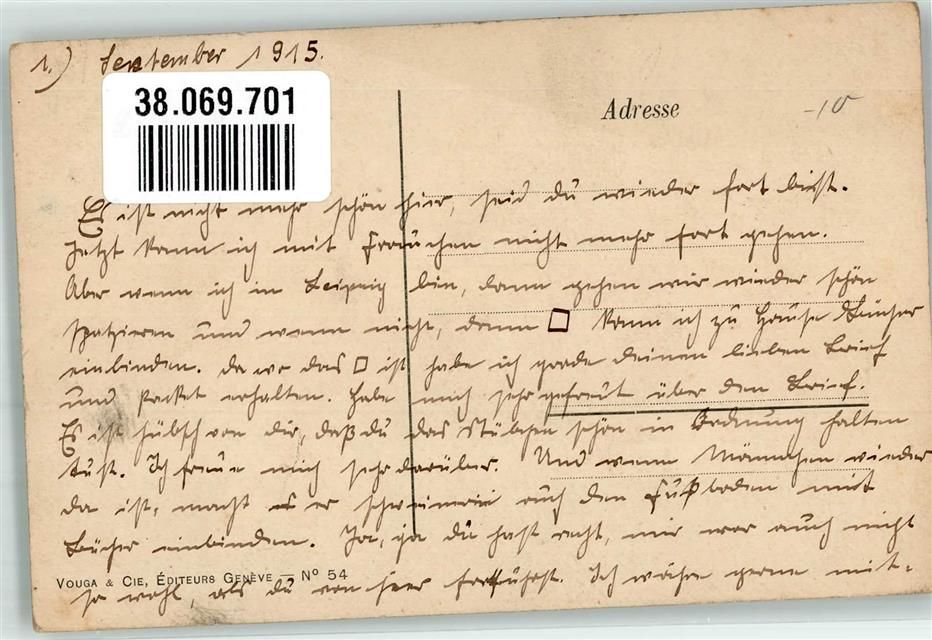 1.) September 1915.
38.069.701
Adresse
-10
Es ist nicht mehr schön hier, seid du wieder fort bist.
Jetzt kann ich mit Frauchen nicht mehr fort gehen.
Aber wenn ich in Leipzig bin, dann gehen wir wieder schön
spazieren und wenn nicht, dann □ kann ich zu Hause Bücher
einbinden. Da wo das □ ist habe ich grade deinen lieben Brief
und Packet erhalten. Habe mich sehr gefreut über den Brief.
Es ist hübsch von dir, daß du das Stübchen schön in Ordnung halten
tust. Ich freue mich sehr darüber. Und wenn Männchen wieder
da ist, macht er schweinerei auch den Fußboden mit
Bücher einbinden. Ja, ja du hast recht, mir war auch nicht
VOUGA & CIE, ÉDITEURS GENÈVE — No 54
so wohl, als du von hier fortfuhrst. Ich währe gerne mit-